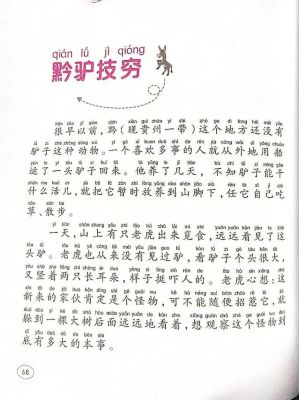 qián lǘ jì qióng
黔驴技穷
很早以前，黔（现贵州一带）这个地方还没有
驴子这种动物。一个喜欢多事的人就从外地用船
运了一头驴子回来。他养了几天，不知驴子能干
什么活儿，就把它暂时放养到山脚下，任它自己吃
草、散步。
一天，山上有只老虎出来觅食，远远看见了这
头驴。老虎也从来没有见过驴，看驴子个头很大，
又竖着两只长耳朵，样子挺吓人的。老虎心想：这
新来的家伙肯定是个怪物，可不能随便招惹它，就
躲到一棵大树后面远远地看着，想观察这个怪物到
底有多大的本事。
68